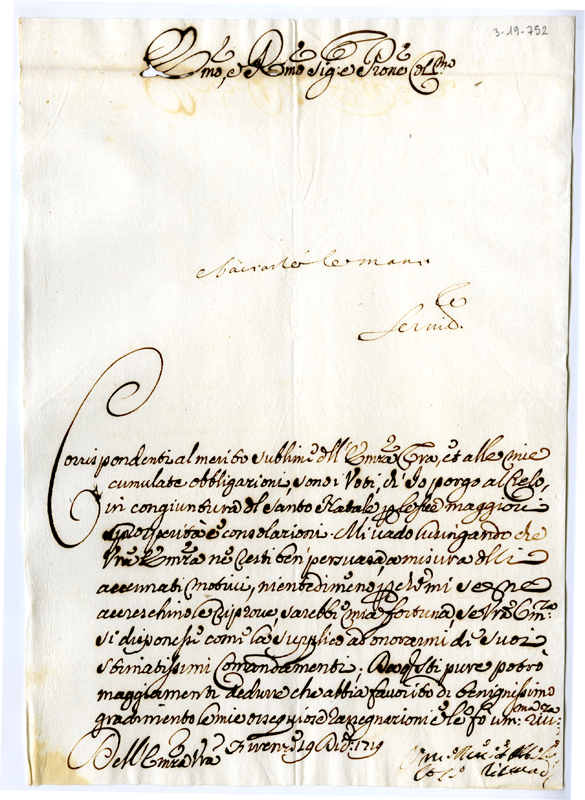 3-19-752
Emo, e Rmo Sig:e Prone Colmo
e le mani
Servid.
Corrispondenti al merito sublime dell'Emza Vra, et alle mie
cumulate obbligazioni, sono i Voti, ch'io porgo al Cielo,
in congiuntura del Santo Natale p le sue maggiori
prosperità e consolazioni. Mi vado lusingando che
Vra Emza ne resti ben persuasa a misura delli
accennati motivi, nientedimeno pche mi se ne
accreschino le riprove, sarebbe mia fortuna, se Vra Emza
si disponesse come la supplico ad onorarmi di suoi
stimatissimi Comandamenti; Da questi pure potrò
maggiormente dedurre che abbia favorito di benignissimo
gradimento le mie ossequiose rassegnazioni e le fo um: riu:
Dell'Emza Vra Firenze 19 Dic. 1719